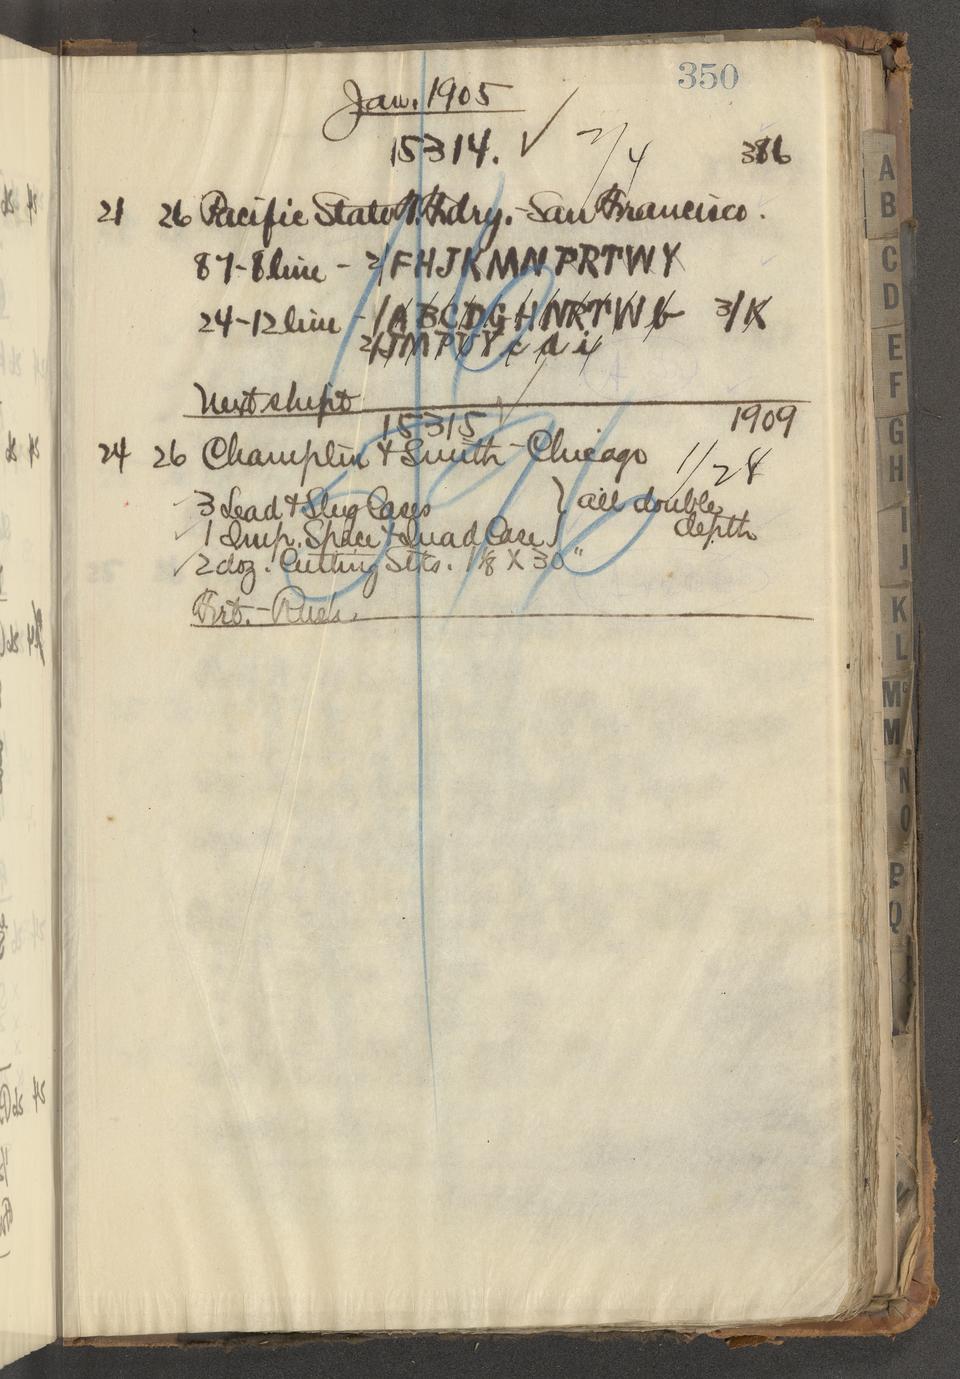 350
Jan. 1905
15314. ✓ 2/4 386
21 26 Pacific States T. Fdry. - San Francisco.
87-8 line - 2/FHJKMNPRTWY
24-12 line - 1/ABCDGHNRTWb 3/K
2/JMPUY c d i
Next shipt
15315 1909
24 26 Champlin & Smith - Chicago 1/24
3 Lead & Slug Cases } all double
1 Imp. Space & Quad Case } depth
2 doz. Cutting Stks. 1 1/8 X 30"
Frt. - Rush.
A
B
C
D
E
F
G
H
I
J
K
L
Mc
M
N
O
P
Q